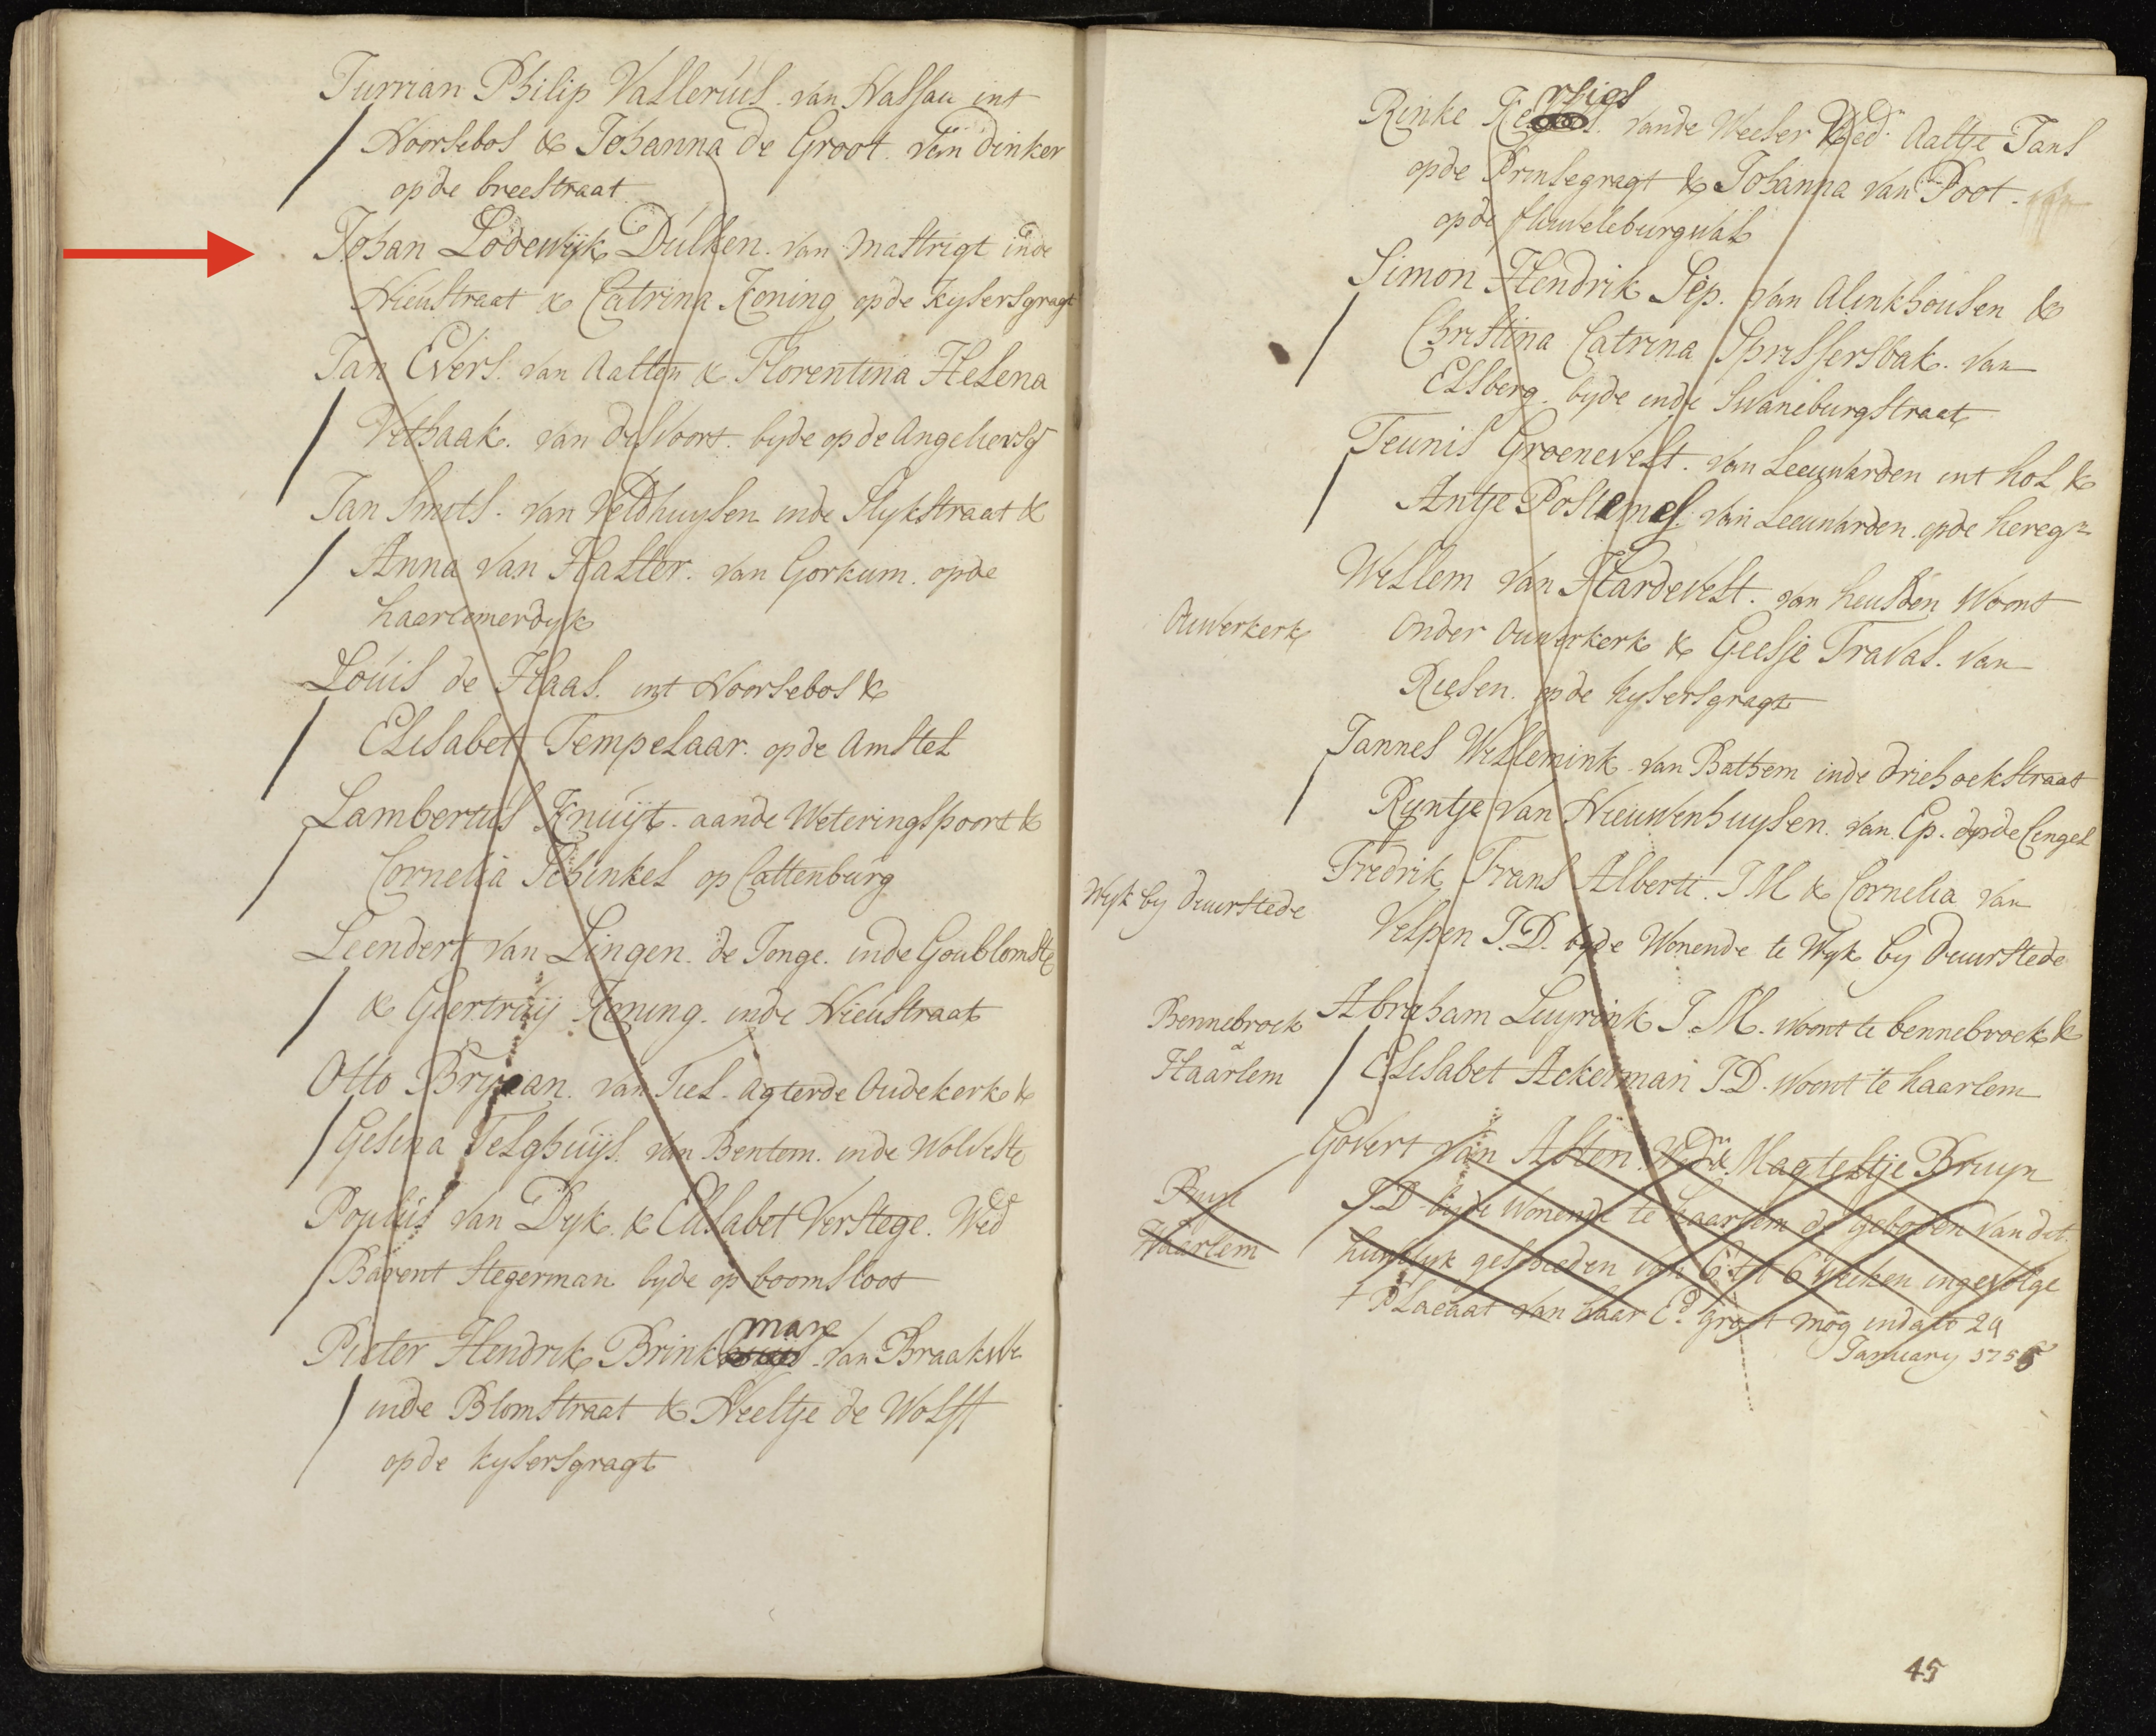 Jurrian Philip Vallerius. van Nassau int
Noorsebos & Johanna de Groot. van dinker
op de breestraat
Johan Lodewijk Dulken. van Mastrigt inde
Nieustraat & Catrina Koning op de Kysersgragt
Jan Evers. van Aalten & Florentina Helena
Vethaak. van de Voort. byde op de Angeliersg
Jan Smits. van Veldhuysen inde Slykstraat &
Anna van Haller. van Gorkum. op de
haarlemerdyk
Louis de Haas. int Noorsebos &
Elisabet Tempelaar. op de Amstel
Lambertus Knuijt. aande Weteringspoort &
Cornelia Schinkel op Cattenburg
Leendert van Lingen. de Jonge. inde Goublomstr
& Geertruij Koning. inde Nieustraat
Otto Bryaan. van Tiel. agter de Oudekerk &
Gesina Telghuijs. van Bentem. inde Wolvestr
Poulus van Dyk. & Elisabet Verstege. Wed
Barent Stegerman byde op boomsloot
mare
Pieter Hendrik Brink van Braakwe
inde Blomstraat & Neeltje de Wolff
op de kysersgragt
Rinke vande Weeser Wedr Aaltje Jans
op de Prinsegragt & Johanna van Poot.
op de fluweleburgwal
Simon Hendrik Sep. van Alinkhousen &
Christina Catrina Sprissersbak. van
Elsberg. byde inde Swaneburgstraat
Teunis Groenevelt. van Leeuwarden int hol &
Antje Postemes van Leeuwarden op de heregr
Willem van Hardevelt. van heusden Woont
Ouwerkerk
onder Ouwerkerk & Geesje Travas. van
Riesen. op de kysersgragt
Jannes Willemink van Bathem inde driehoekstraat
Ryntje van Nieuwenhuysen. van Ep. op de Cingel
Fredrik Frans Alberti. J M & Cornelia van
Wyk by duurstede
Velpen J.D. byde Wonende te Wyk by duurstede
Bennebroek
Abraham Luyrink J.M. woont te bennebroek &
&
Haarlem
Elisabet Ackerman J D. woont te haarlem
Govert van Asten. Magteltje Bruyn
J D byde Wonende te haarlem de geboden van dit
Haarlem
huwelyk geschieden van 6 tot 6 weeken ingevolge
t Placaat van haar Ed groot mog in dato 24
January 1755
45